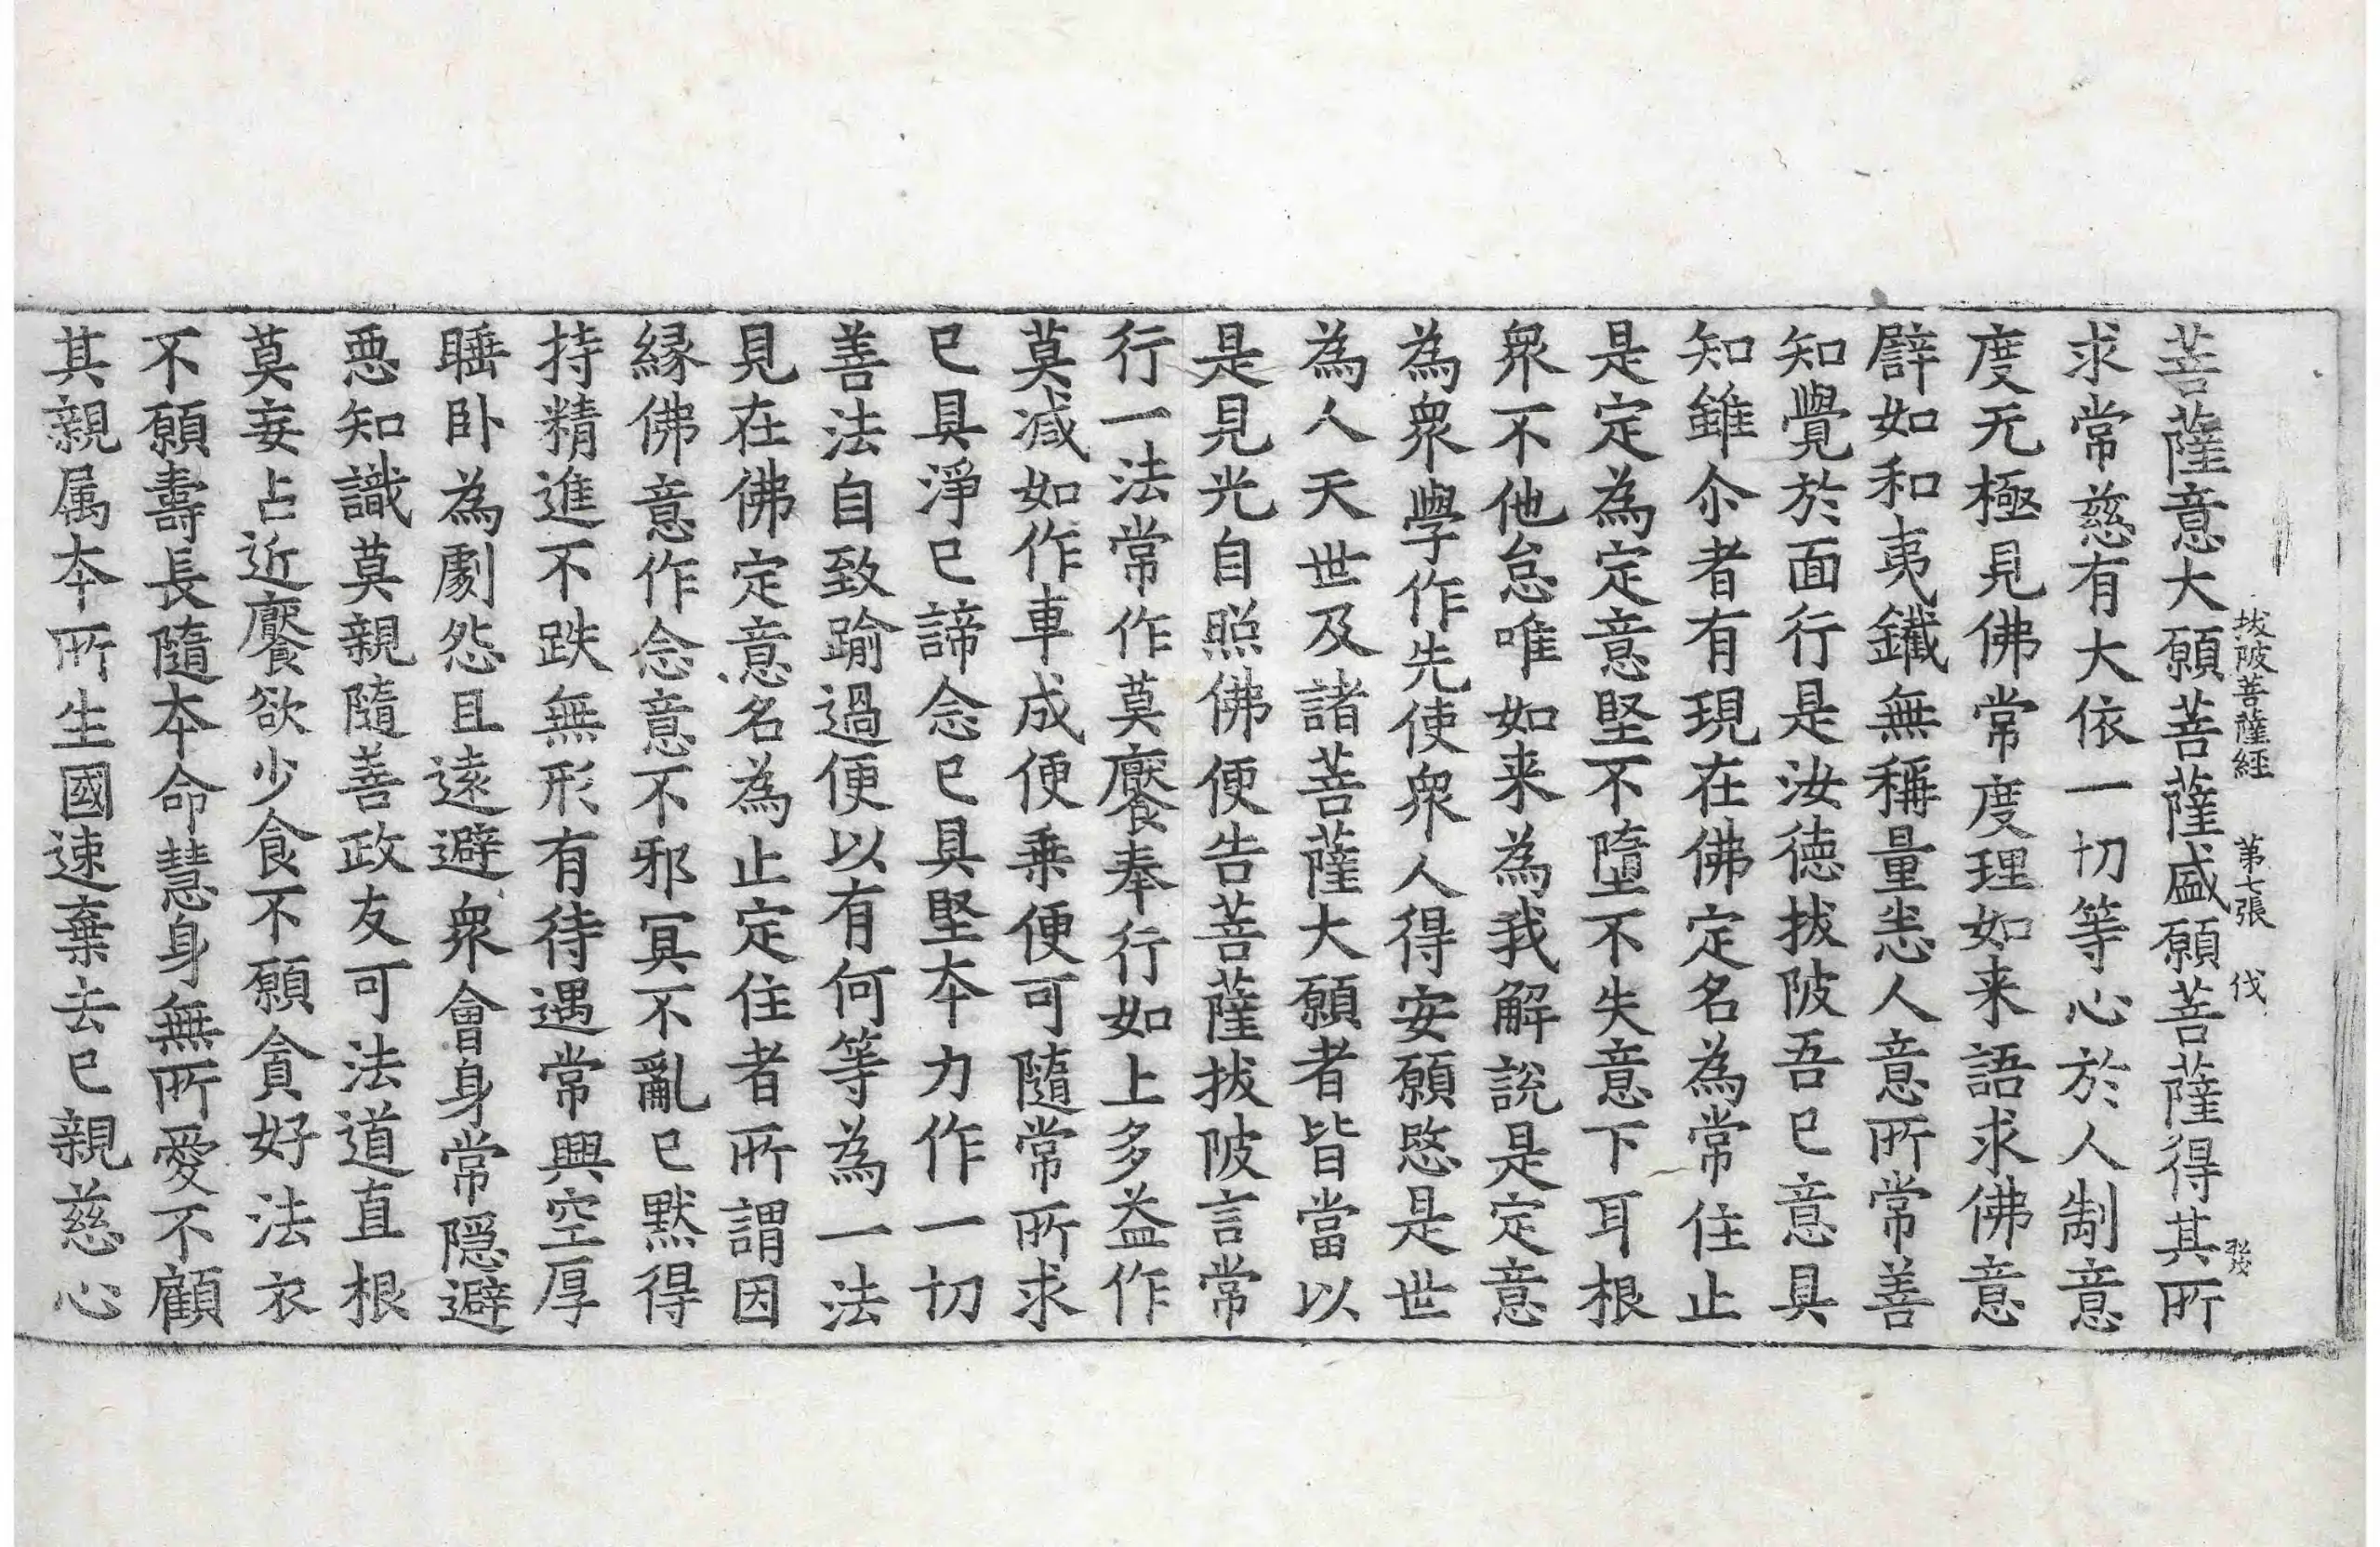 拔陂菩薩經　第七張　伐
菩薩意大願菩薩盛願菩薩得其所
求常慈有大依一切等心於人制意
度无極見佛常度理如来語求佛意
譬如和夷鐵無稱量恚人意所常善
知覺於面行是汝德拔陂吾已意具
知雖尒者有現在佛定名為常住止
是定為定意堅不墮不失意下耳根
衆不他怠唯如来為我解說是定意
為衆學作先使衆人得安願愍是世
為人天世及諸菩薩大願者皆當以
是見光自照佛便告菩薩拔陂言常
行一法常作莫饜奉行如上多益作
莫减如作車成便乗便可隨常所求
已具淨已諦念已具堅本力作一切
善法自致踰過便以有何等為一法
見在佛定意名為止定住者所謂因
緣佛意作念意不邪冥不亂已默得
持精進不跌無形有待遇常興空厚
睡卧為劇怨且遠避衆會身常隱避
惡知識莫親隨善政友可法道直根
莫妄占近饜欲少食不願貪好法衣
不願壽長隨本命慧身無所愛不顧
其親属本所生國速棄去已親慈心